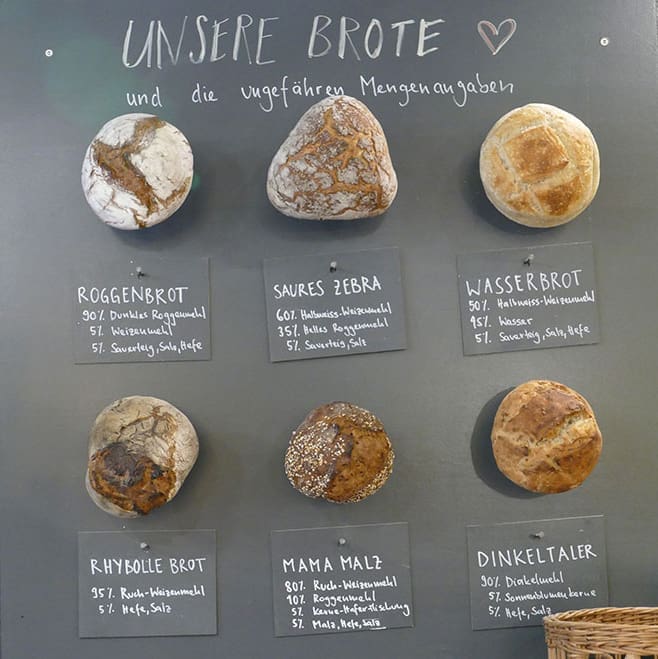 UNSERE BROTE
und die ungefähren Mengenangaben
ROGGENBROT
90% Dunkles Roggenmehl
5% Weizenmehl
5% Sauerteig, Salz, Hefe
SAURES ZEBRA
60% Halbweiss-Weizenmehl
35% Helles Roggenmehl
5% Sauerteig, Salz
WASSERBROT
50% Halbweiss-Weizenmehl
45% Wasser
5% Sauerteig, Salz, Hefe
RHYBOLLE BROT
95% Ruch-Weizenmehl
5% Hefe, Salz
MAMA MALZ
80% Ruch-Weizenmehl
10% Roggenmehl
5% Kerne-Hafer-Mischung
5% Malz, Hefe, Salz
DINKELTALER
90% Dinkelmehl
5% Sonnenblumenkerne
5% Hefe, Salz